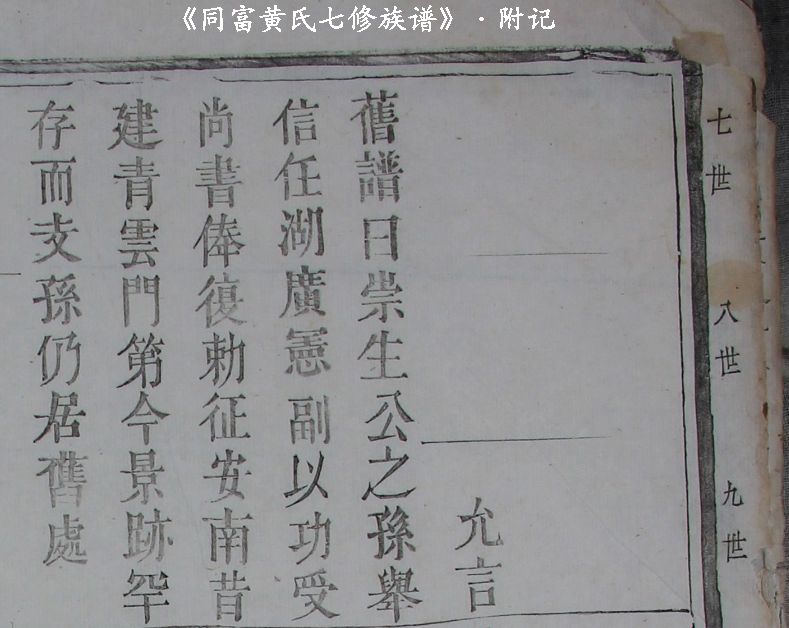 《同富黄氏七修族谱》·附记
七世
八世
九世
允言
舊譜曰崇生公之孫舉
信任湖廣憲副以功受
尚書俸復勅征安南昔
建青雲門第今景跡罕
存而支孫仍居舊處